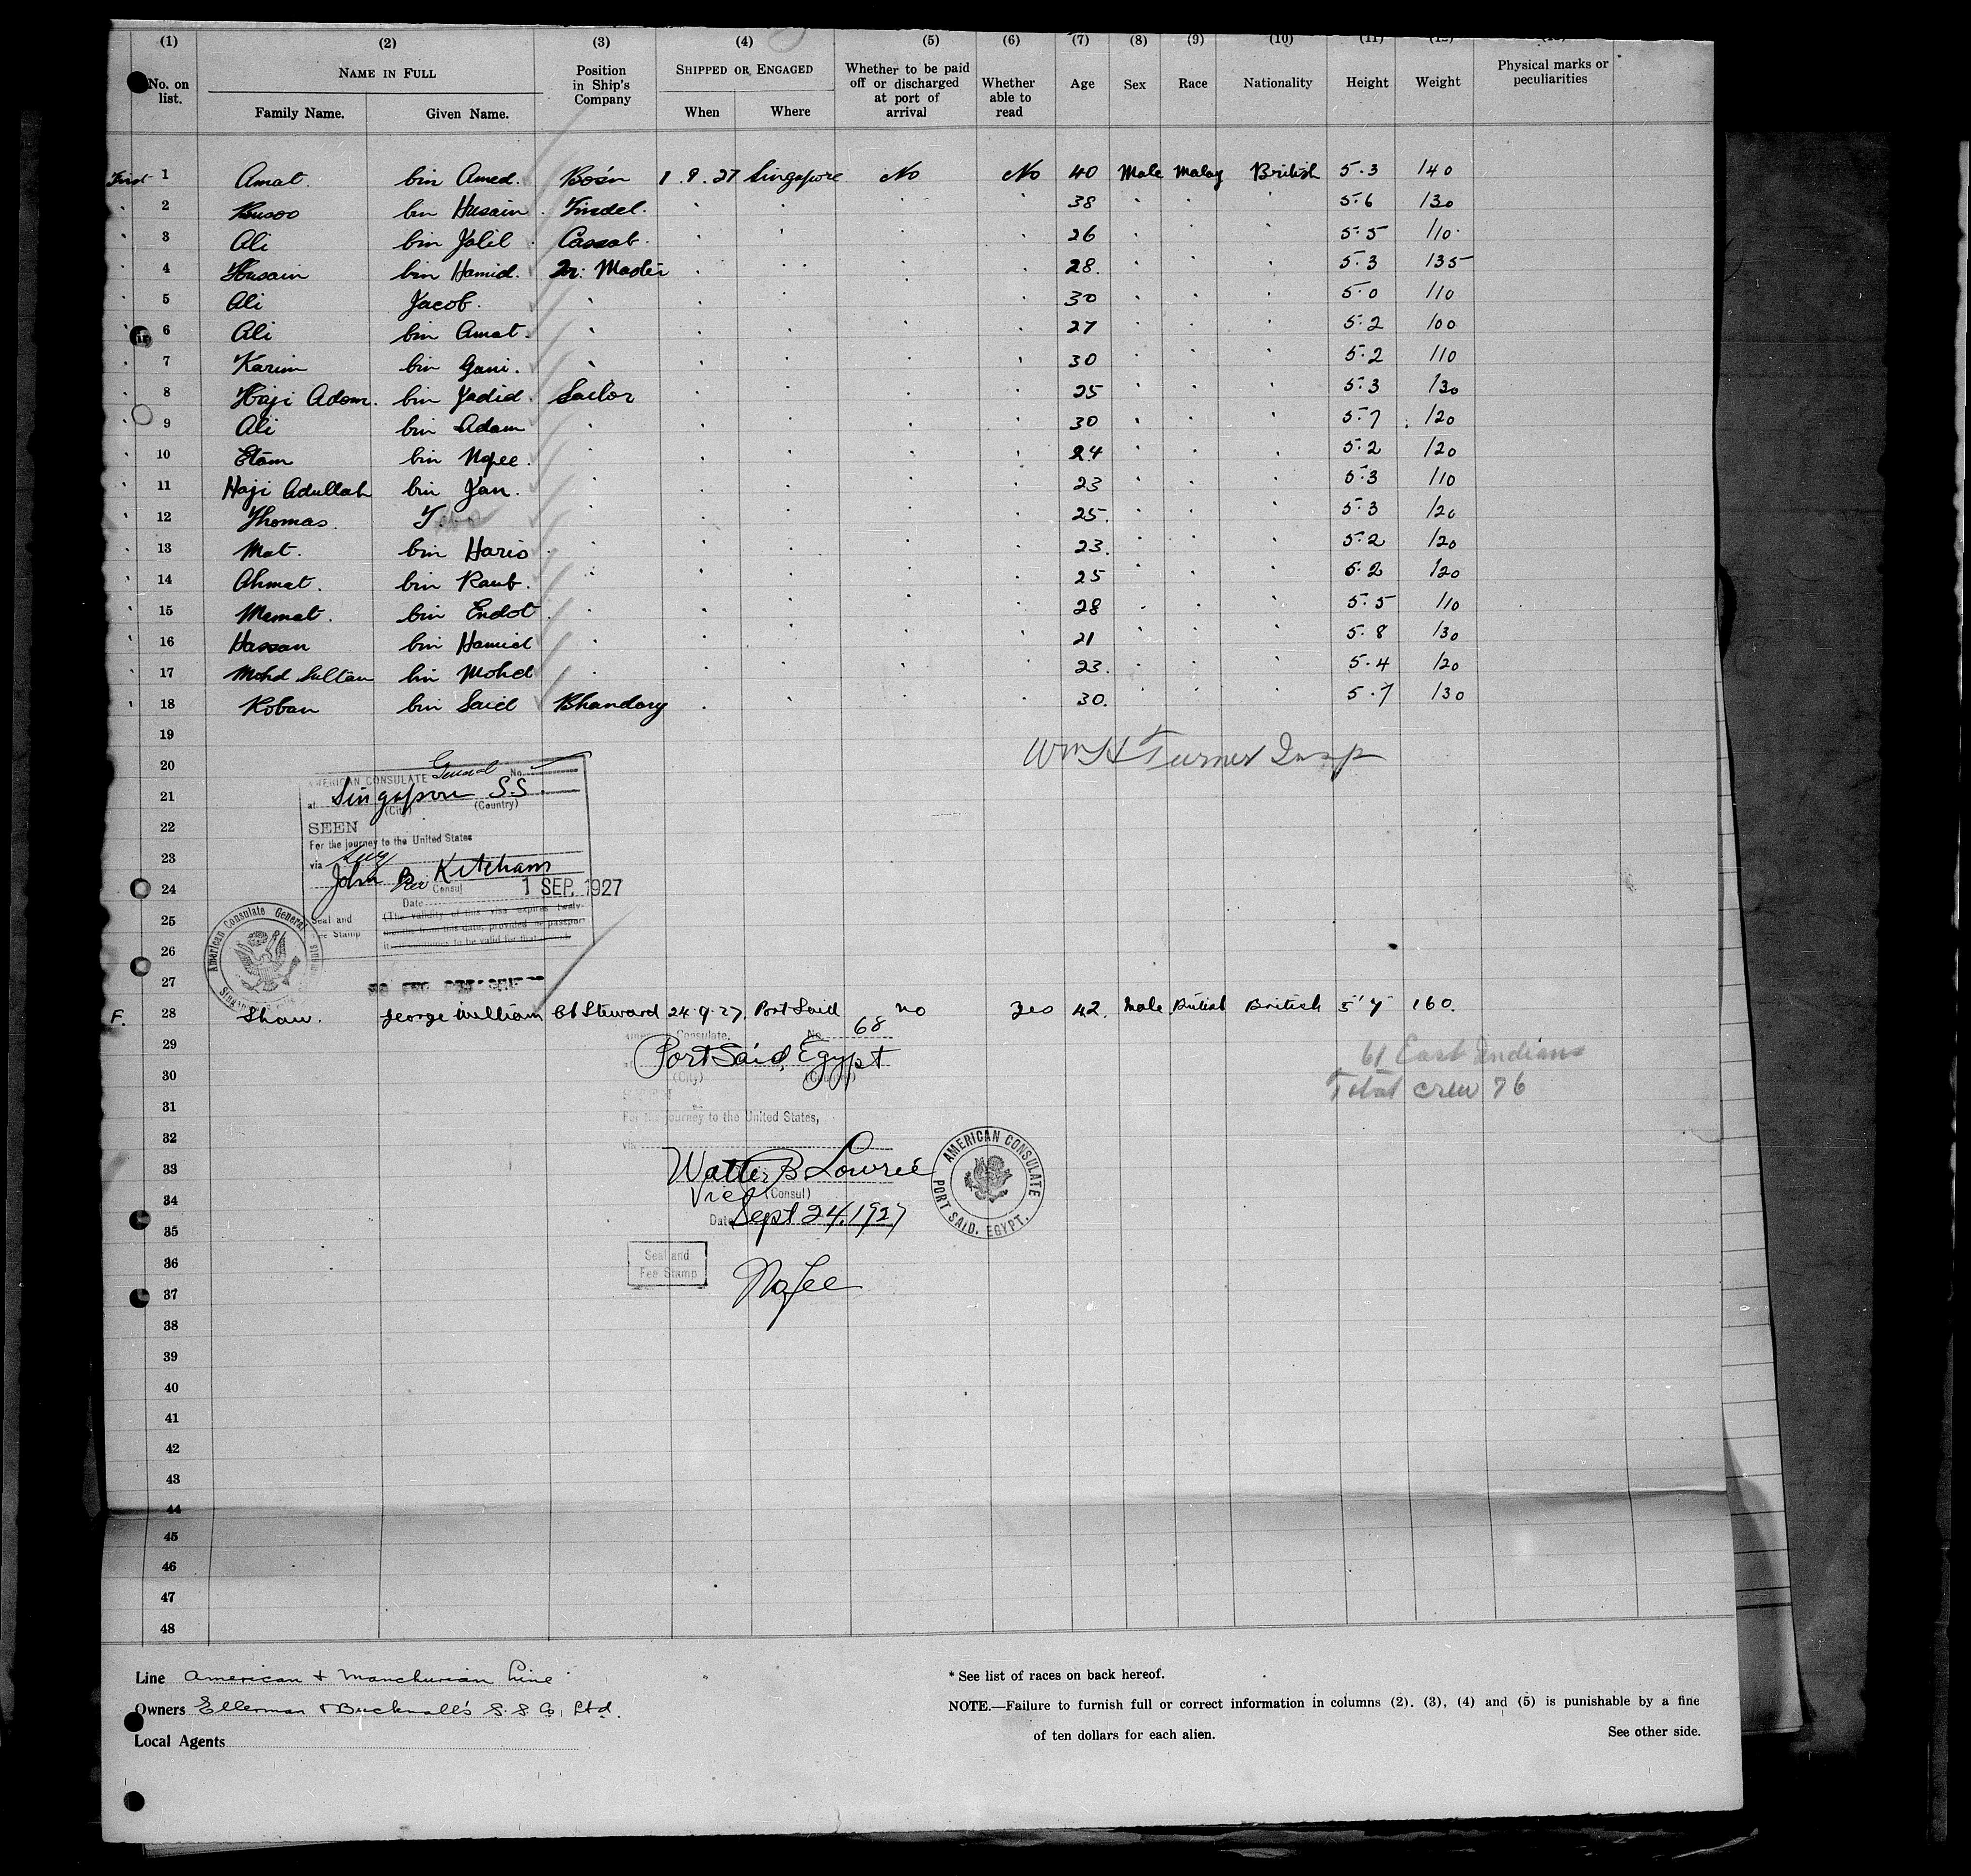 (1) (2) (3) (4) (5) (6) (7) (8) (9) (10) (11) (12) (13)
No. on list. NAME IN FULL Position in Ship's Company SHIPPED OR ENGAGED Whether to be paid off or discharged at port of arrival Whether able to read Age Sex Race Nationality Height Weight Physical marks or peculiarities
Family Name. Given Name. When Where
First 1 Amat. bin Amed. Bos'n 1.9.27 Singapore No No 40 Male Malay British 5.3 140
2 Busoo bin Husain. Tindel. 38 5.6 130
3 Ali bin Jalil. Cassab. 26 5.5 110
4 Husain bin Hamid. Qr. Master 28. 5.3 135
5 Ali Jacob. 30 5.0 110
6 Ali bin Amat. 27 5.2 100
7 Karim bin Gani. 30 5.2 110
8 Haji Adam. bin Yadid. Sailor 25 5.3 130
9 Ali bin Adam 30 5.7 120
10 Etam bin Ngee. 24 5.2 120
11 Haji Adullah bin Yan. 23 5.3 110
12 Thomas. T 25. 5.3 120
13 Mat. bin Haris 23. 5.2 120
14 Ahmat. bin Raub. 25 5.2 120
15 Memat. bin Endot. 28 5.5 110
16 Hassan bin Hamid 21 5.8 130
17 Mohd Sultan bin Mohd 23. 5.4 120
18 Koban bin Said Bhandary 30. 5.7 130
19
Wm H Turner Insp
20
AMERICAN CONSULATE General No.
21
at Singapore S.S.
(City) (Country)
22
SEEN
For the journey to the United States
23
via
24
John B Ketcham
Vice Consul
Date 1 SEP. 1927
25
Seal and Fee Stamp
(The validity of this visa expires twelve months from this date, provided the passport continues to be valid for that period.)
26
American Consulate General
27
F. 28 Shaw. George William Ch Steward 24.9.27. Port Said no Yes 42. Male British British 5'7" 160.
29
Consulate. No. 68
Port Said, Egypt
(City) (Country)
61 East Indians
30
Total crew 76
31
For the journey to the United States,
32
via
33
Walter B Lowrie
Vice (Consul)
34
Date Sept 24, 1927
AMERICAN CONSULATE
PORT SAID, EGYPT.
35
36
Seal and
Fee Stamp
No fee
37
38
39
40
41
42
43
44
45
46
47
48
Line American & Manchurian Line
Owners Ellerman & Bucknall's S.S. Co. Ltd.
Local Agents
* See list of races on back hereof.
NOTE.—Failure to furnish full or correct information in columns (2), (3), (4) and (5) is punishable by a fine
of ten dollars for each alien. See other side.